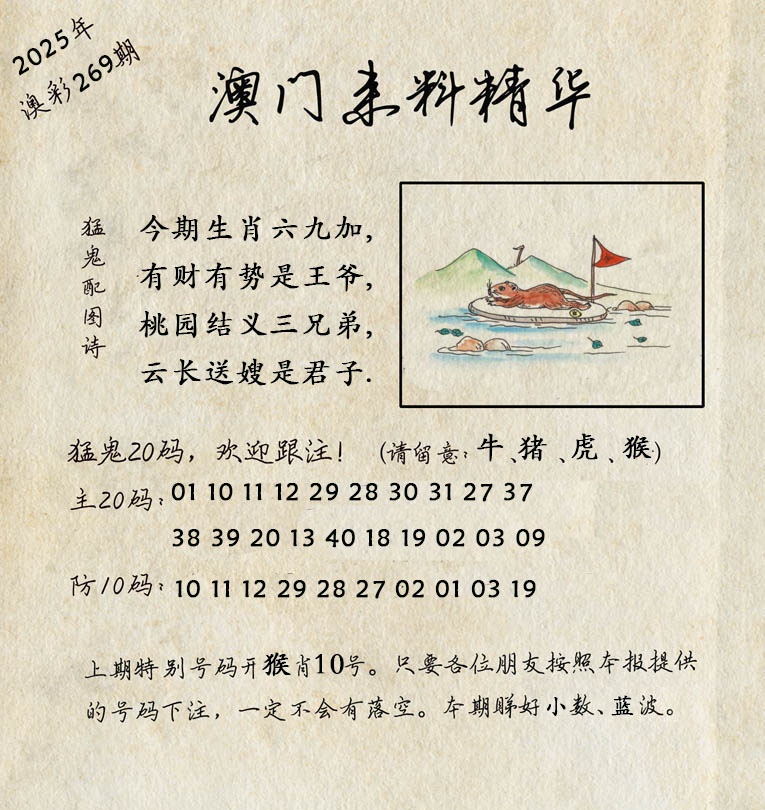 2025年
澳彩269期
澳门来料精华
猛鬼配图诗
今期生肖六九加,
有财有势是王爷,
桃园结义三兄弟,
云长送嫂是君子.
猛鬼20码，欢迎跟注！（请留意：牛、猪、虎、猴）
主20码：01 10 11 12 29 28 30 31 27 37
38 39 20 13 40 18 19 02 03 09
防10码：10 11 12 29 28 27 02 01 03 19
上期特别号码开猴肖10号。只要各位朋友按照本报提供
的号码下注，一定不会有落空。本期睇好小数、蓝波。